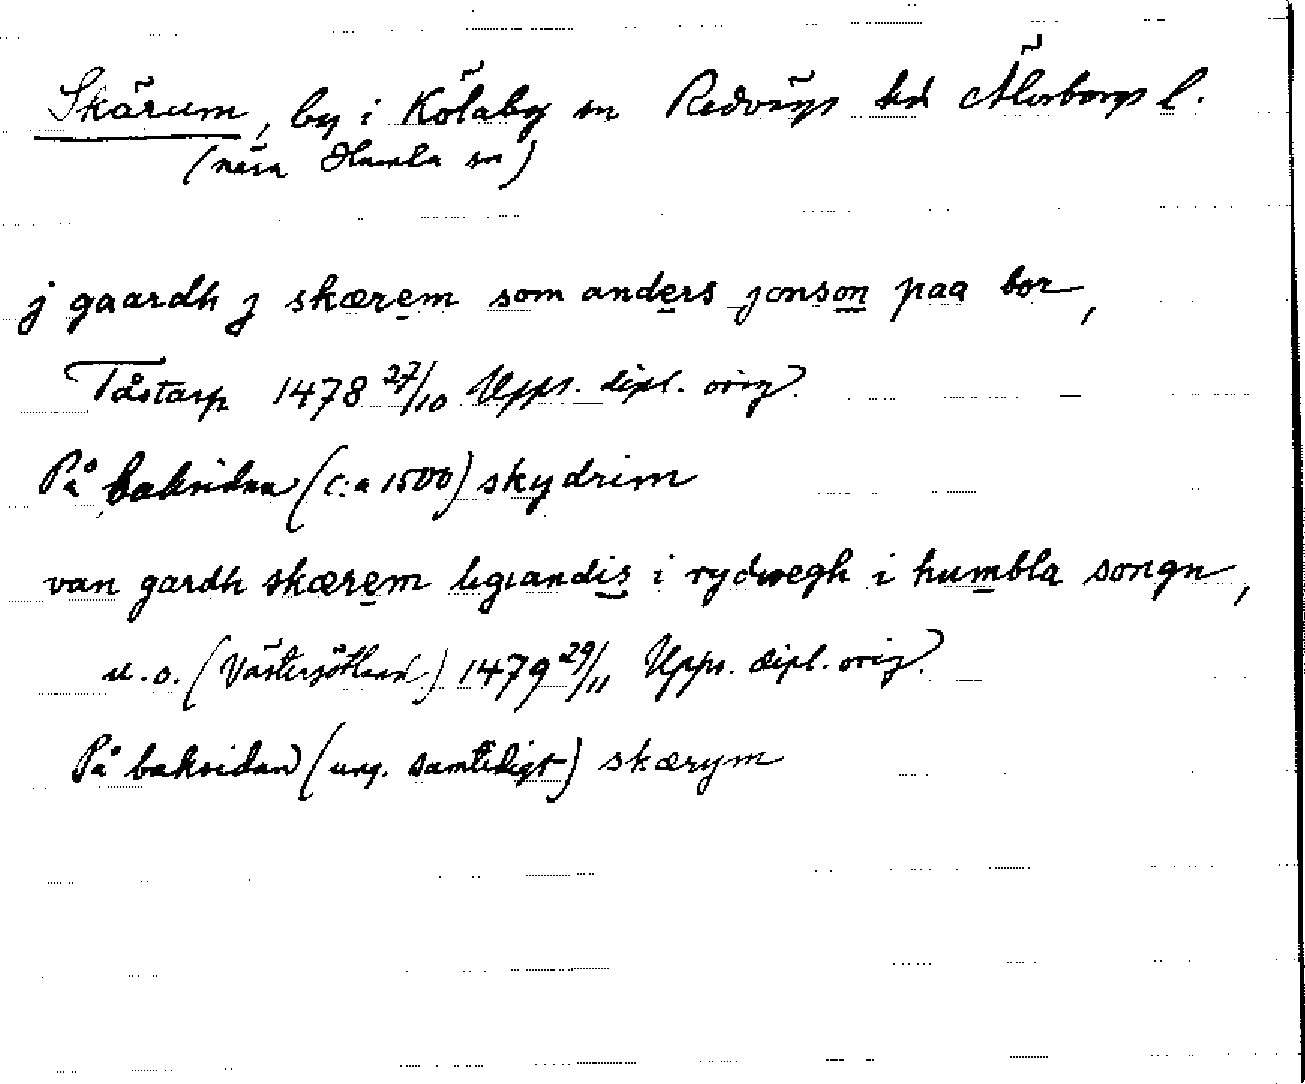 Skärum, by i Kölaby sn Redvägs hd Älvsborgs l.
(nära Humla sn)
j gaardh j skærem som anders jonson paa bor,
Tåstarp 1478 27/10 Upps. dipl. orig.
På baksidan (c:a 1500) skydrim
van gardh skærem ligiandis i rydwegh i humbla songn,
u.o. (Västergötland) 1479 29/11 Upps. dipl. orig.
På baksidan (ung. samtidigt) skærym